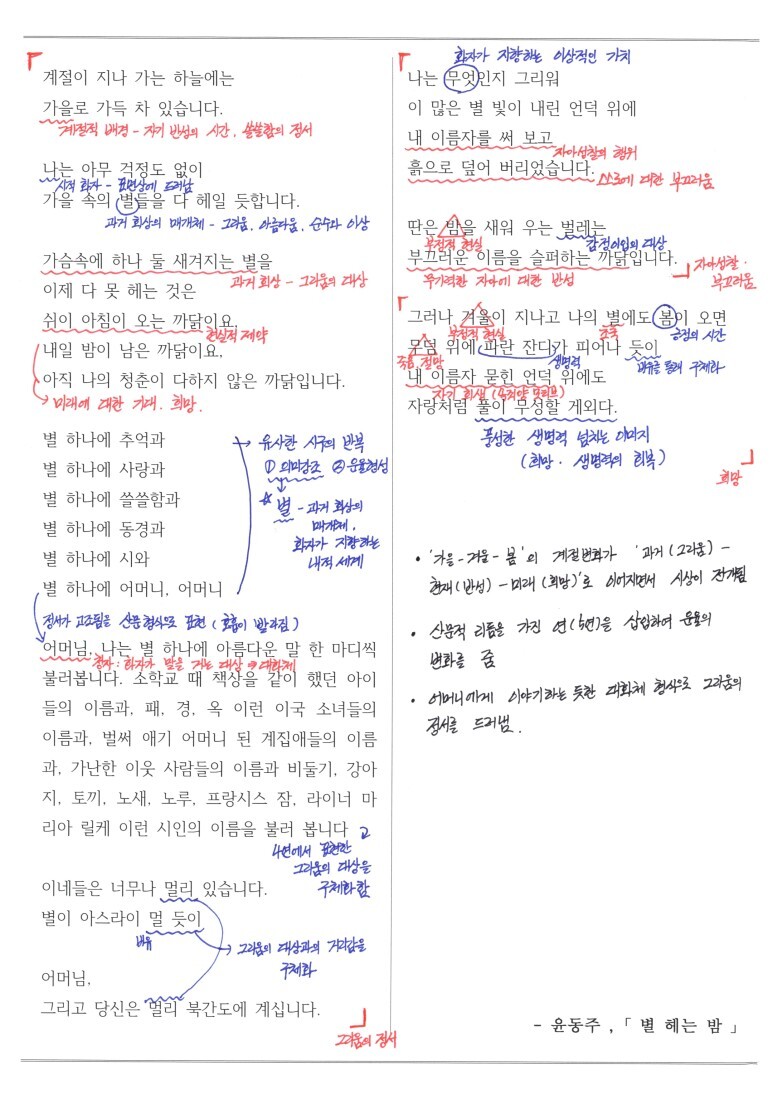 계절이 지나 가는 하늘에는
가을로 가득 차 있습니다.
계절적 배경 - 자기 반성의 시간, 쓸쓸함의 정서
나는 아무 걱정도 없이
시적 화자 - 표면상에 드러남
가을 속의 별들을 다 헤일 듯합니다.
과거 회상의 매개체 - 그리움, 아름다움, 순수와 이상
가슴속에 하나 둘 새겨지는 별을
과거 회상 - 그리움의 대상
이제 다 못 헤는 것은
쉬이 아침이 오는 까닭이요,
현실적 제약
내일 밤이 남은 까닭이요,
아직 나의 청춘이 다하지 않은 까닭입니다.
미래에 대한 기대. 희망.
별 하나에 추억과
별 하나에 사랑과
별 하나에 쓸쓸함과
별 하나에 동경과
별 하나에 시와
별 하나에 어머니, 어머니
→ 유사한 시구의 반복
① 의미강조 ② 운율형성
☆ 별 - 과거 회상의
매개체,
화자가 지향하는
내적 세계
정서가 고조됨을 산문형식으로 표현 (호흡이 빨라짐)
어머님, 나는 별 하나에 아름다운 말 한 마디씩
청자 : 화자가 말을 거는 대상 ⇒ 대화체
불러봅니다. 소학교 때 책상을 같이 했던 아이
들의 이름과, 패, 경, 옥 이런 이국 소녀들의
이름과, 벌써 애기 어머니 된 계집애들의 이름
과, 가난한 이웃 사람들의 이름과 비둘기, 강아
지, 토끼, 노새, 노루, 프랑시스 잠, 라이너 마
리아 릴케 이런 시인의 이름을 불러 봅니다
4연에서 표현한
그리움의 대상을
구체화함
이네들은 너무나 멀리 있습니다.
별이 아스라이 멀 듯이
비유
→ 그리움의 대상과의 거리감을
구체화
어머님,
그리고 당신은 멀리 북간도에 계십니다.
그리움의 정서
화자가 지향하는 이상적인 가치
나는 무엇인지 그리워
이 많은 별 빛이 내린 언덕 위에
내 이름자를 써 보고
자아성찰의 행위
흙으로 덮어 버리었습니다.
스스로에 대한 부끄러움
딴은 밤을 새워 우는 벌레는
부정적 현실
감정이입의 대상
부끄러운 이름을 슬퍼하는 까닭입니다.
무기력한 자아에 대한 반성
자아성찰.
부끄러움
그러나 겨울이 지나고 나의 별에도 봄이 오면
부정적 현실
조국
긍정의 시간
무덤 위에 파란 잔디가 피어나 듯이
죽음, 절망
생명력
비유를 통해 구체화
내 이름자 묻힌 언덕 위에도
자기 희생 (속죄양 모티브)
자랑처럼 풀이 무성할 게외다.
풍성한 생명력 넘치는 이미지
(희망. 생명력의 회복)
희망
• '가을-겨울-봄'의 계절변화가 '과거(그리움) -
현재(반성) - 미래(희망)'로 이어지면서 시상이 전개됨
• 산문적 리듬을 가진 연(5연)을 삽입하여 운율의
변화를 줌
• 어머니에게 이야기하는 듯한 대화체 형식으로 그리움의
정서를 드러냄.
- 윤동주 , 「 별 헤는 밤 」